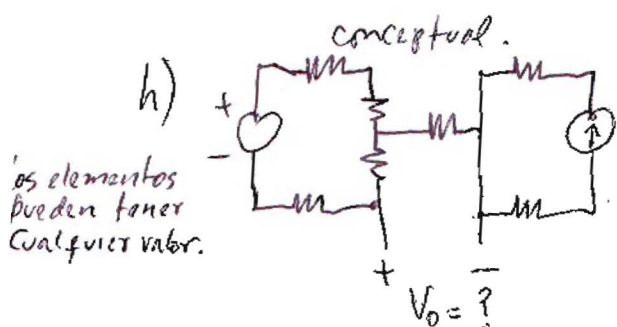 conceptual.
h)
+
-
os elementos
pueden tener
cualquier valor.
+ -
V₀ = ?